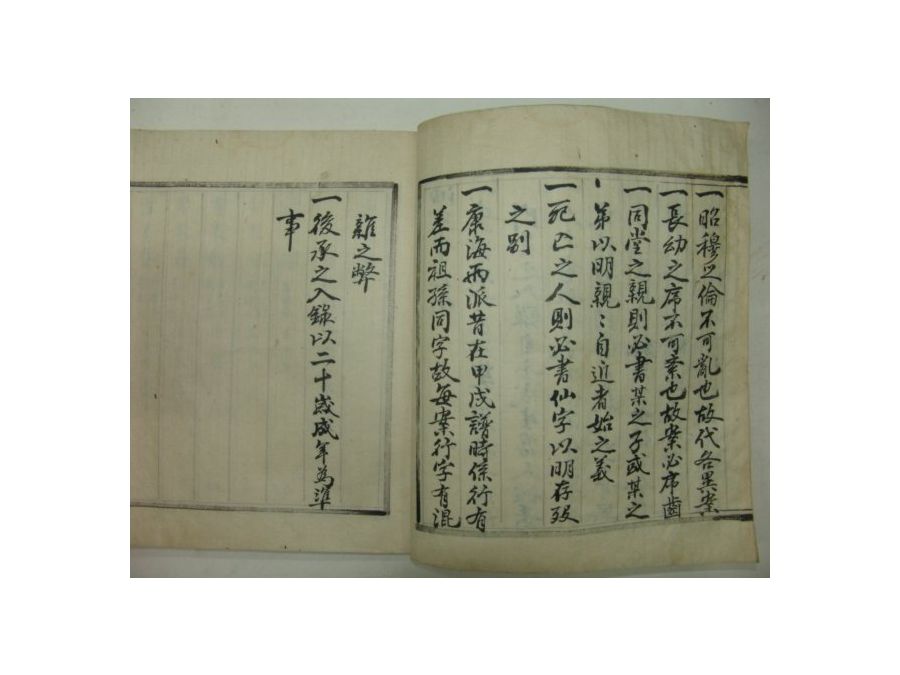 一昭穆之倫不可亂也故代各異案
一長幼之席不可紊也故案必序齒
一同堂之親則必書某之子或某之
弟以明親〻自近者始之義
一死亡之人則必書仙字以明存歿
之別
一康海兩派昔在甲戌譜時係行有
差而祖孫同字故每案行字有混
雜之弊
一後承之入錄以二十歲成年為準
事